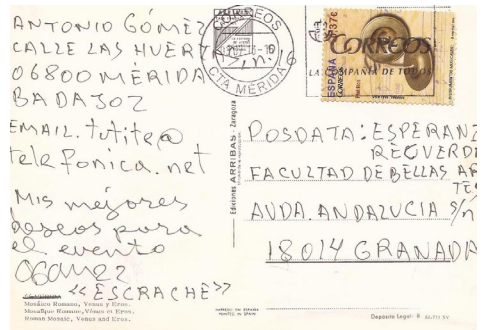 ANTONIO GÓMEZ
CALLE LAS HUERTAS
06800 MÉRIDA
BADAJOZ
EMAIL. tutite@
telefonica.net
Mis mejores
deseos para
el evento
AGómez
<<ESCRACHE>>
Mosáico Romano, Venus y Eros.
Mosaïque Romaine, Vénus et Eros.
Roman Mosaic, Venus and Eros.
Ediciones ARRIBAS - Zaragoza
IMPRESO EN ESPAÑA
PRINTED IN SPAIN
CORREOS
CTA MERIDA
CORREOS
LA COMPAÑIA DE TODOS
ESPAÑA
CORREOS
0,37€
POSDATA: ESPERANZ
RECUERD
FACULTAD DE BELLAS AR
TES
AVDA. ANDALUCIA s/n
18014 GRANADA
Depósito Legal: B